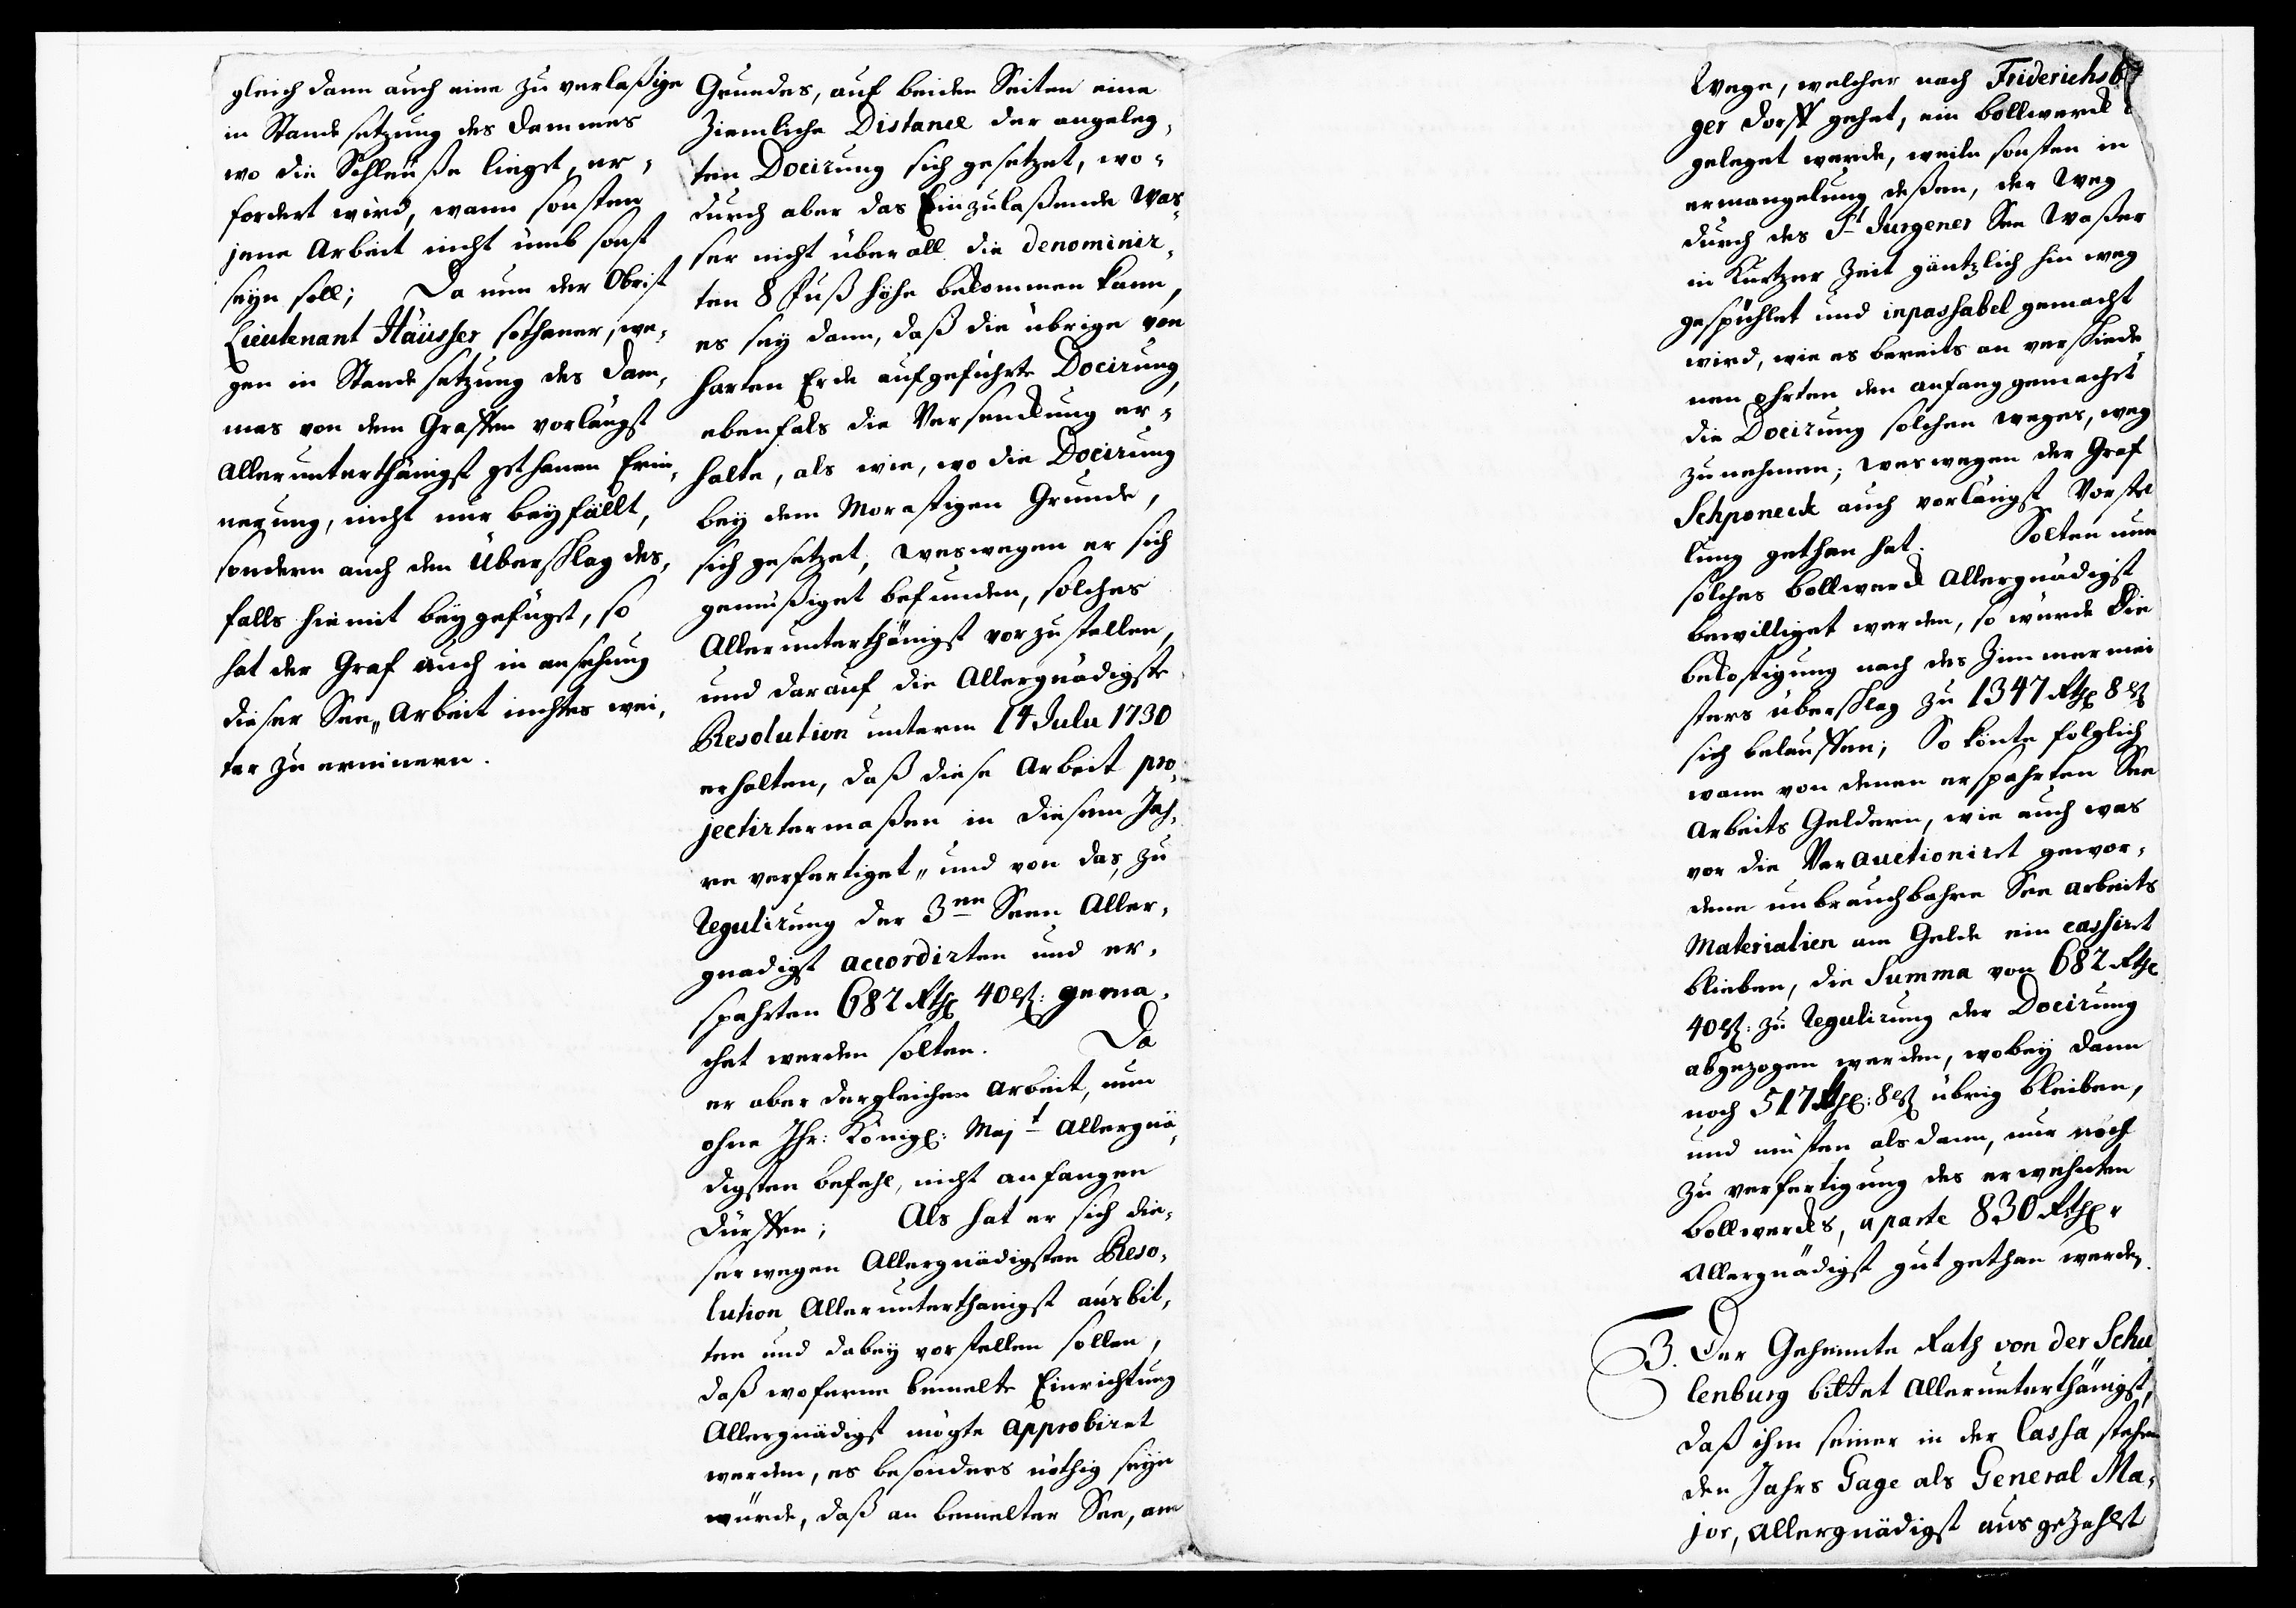 gleich dann auch eine zu verlaßige
in Stande setzung des Dammes
wo die Schleuße lieget, er-
fordert wird, wann sonsten
jene Arbeit nicht umb sonst
seyn soll; Da nun der Obrist
Lieutenant Häüsser sothaner, we-
gen in Stande setzung des Dam-
mes von dem Graffen vorlängst
Allerunterthänigst gethanen Erin-
nerung, nicht nur beyfällt,
sondern auch den Überschlag des-
falls hiemit beygefüget, so
hat der Graf auch in ansehung
dieser See-Arbeit nichtes wei-
ter zu erinnern.
Grundes, auf beiden Seiten eine
Ziemliche Distance der angeleg-
ten Docirung sich gesetzet, wo-
durch aber das Einzulaßende Was-
ser nicht überall die denominir-
ten 8 Fuß höhe bekommen kann,
es sey dann, daß die übrige von
harten Erde aufgeführte Docirung,
ebenfals die Versenckung er-
halte, als wie, wo die Docirung
bey dem Morastigen Grunde,
sich gesetzet, weswegen er sich
gemüßiget befunden, solches
Allerunterthänigst vorzustellen,
und darauf die Allergnädigste
Resolution unterm 14 Julii 1730
erhalten, daß diese Arbeit pro-
jectirtermaßen in diesem Jah-
re verfertiget, und von das, zu
Regulirung der 3en Seen Aller-
gnadigst accordirten und er-
spahrten 682 Rthl 40 ß: gema-
chet werden solten. Da
er aber dergleichen Arbeit, nun
ohne Ihr: Königl: Majt Allergnä-
digsten befehl, nicht anfangen
dürffen; Als hat er sich die-
serwegen Allergnädigsten Reso-
lution Allerunterthänigst ausbit-
ten und dabey vorstellen sollen,
daß woferne bemelte Einrichtung
Allergnädigst mögte approbiret
werden, es besonders nöthig seyn
würde, daß an bemelter See, am
Wege, welcher nach Friderichsb
ger Dorff gehet, ein bollwerck
geleget werde, weiln sonsten in
ermangelung deßen, der Weg
durch des St Jurgener See Waßer
in Kurtzer Zeit gäntzlich hin weg
gespühlet und inpassabel gemacht
wird, wie es bereits an verschiede-
nen ohrten den anfang gemachet
die Docirung solchen weges, weg
zu nehmen; weswegen der Graf
Schponeck auch vorlängst Vorstel
lung gethan hat. Solten nun
solches bollwerck Allergnädigst
bewilliget werden, so würde die
bekostigung nach des Zimmermei
sters überschlag zu 1347 Rthl 8 ß
sich belauffen; So könte folglich
wann von denen erspahrten See
Arbeits Geldern, wie auch was
vor die Verauctioniret gewor-
dene unbrauchbahre See arbeits
Materialien am Gelde ein cassiret
blieben, die Summa von 682 Rthl
40 ß: zu Regulirung der Docirung
abgezogen werden, wobey dann
noch 517 Rthl: 8 ß übrig bleiben,
und müsten alsdann, nur noch
zu verfertigung des erwehnten
bollwercks, aparte 830 Rthlr
Allergnädigst gut gethan werden.
3. Der Geheimte Rath von der Schu
lenburg bittet Allerunterthänigst,
daß ihm seiner in der Cassa stehen
den Jahrs Gage als General Ma-
jor, Allergnädigst ausgezahlet